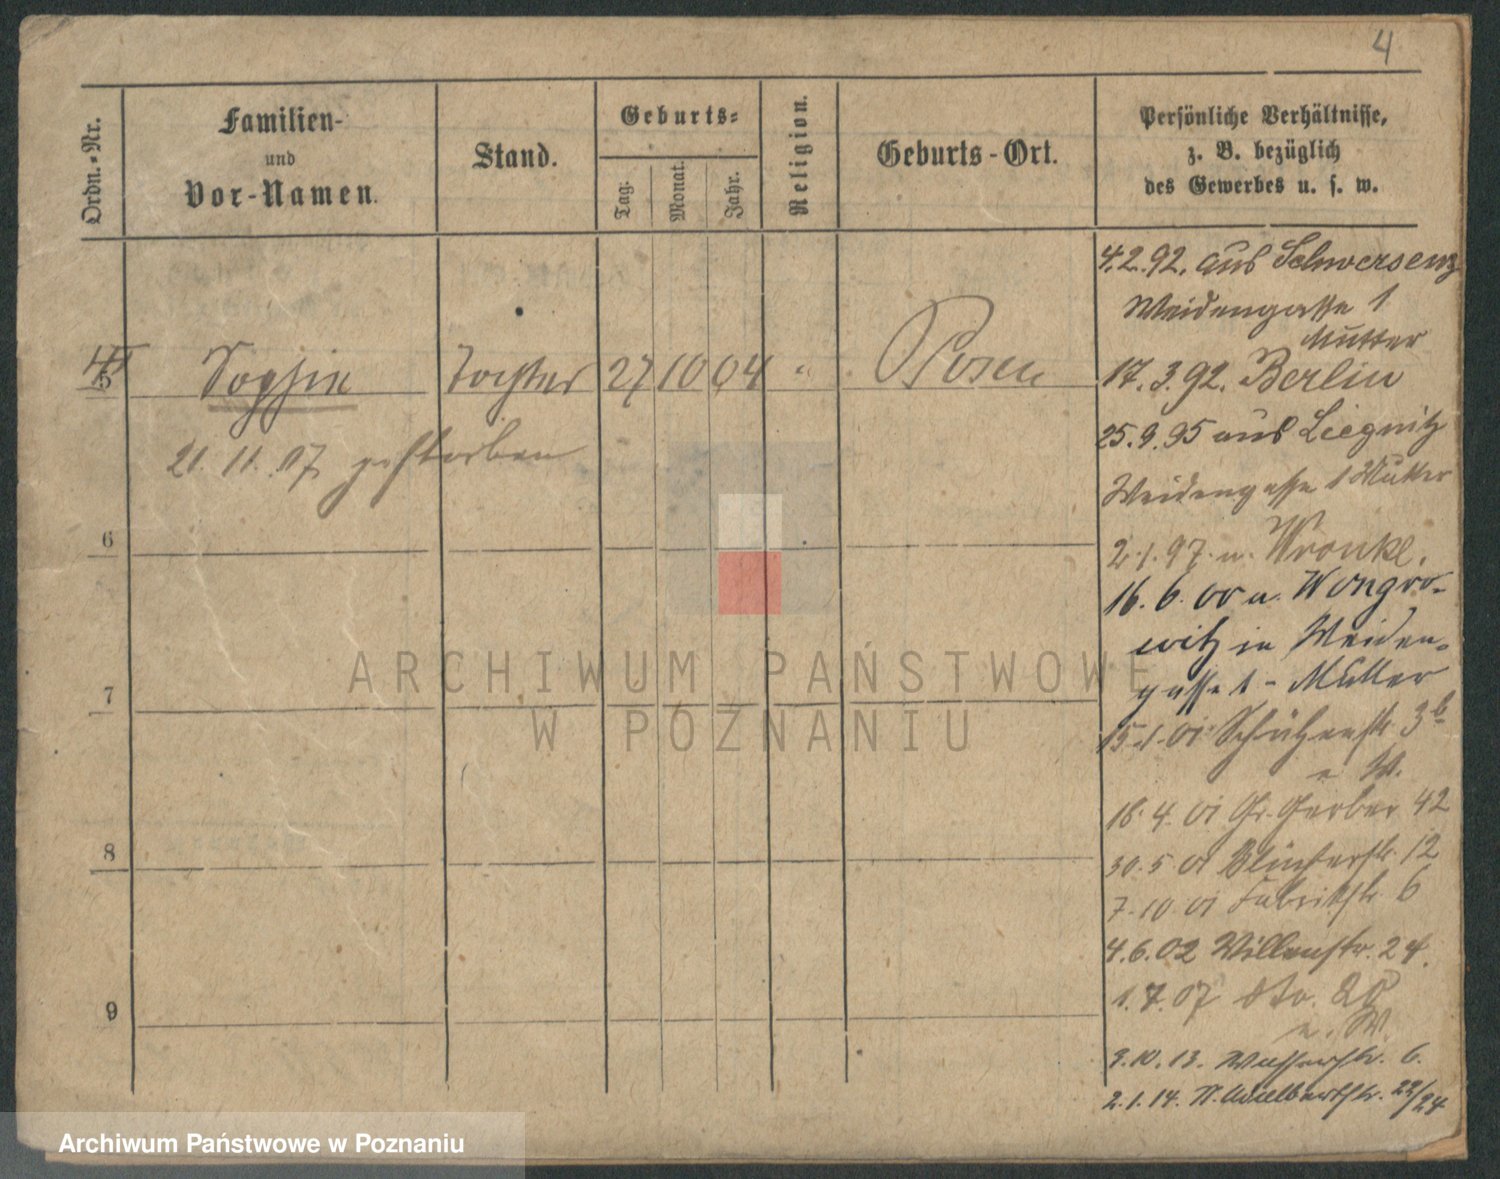 4
Ordn.-Nr.
Familien-
und
Vor-Namen.
Stand.
Geburts-
Tag:
Monat.
Jahr.
Religion.
Geburts-Ort.
Persönliche Verhältnisse,
z. B. bezüglich
des Gewerbes u. s. w.
4.2.92. aus Schwersenz
Weidengasse 1
Mutter
5 Sophie Tochter 27 10 04 " Posen
17.3.92. Berlin
25.9.95 aus Liegnitz
21.11.07 gestorben
Weidengasse 1 Mutter
6
2.1.97. n. Wronke.
16.6.00 a. Wongro-
witz in Weiden-
gasse 1 - Mutter
7
15.1.01 Schützenstr. 3b
n W.
18.4.01 Gr. Gerber 42
8
30.5.01 Blücherstr. 12
7.10.01 Fabrikstr. 6
4.6.02 Villenstr. 24.
9
1.7.07 dto. 28
n. W.
9.10.13. Wasserstr. 6.
2.1.14. N. Adalbertstr. 22/24
ARCHIWUM PAŃSTWOWE
W POZNANIU
Archiwum Państwowe w Poznaniu